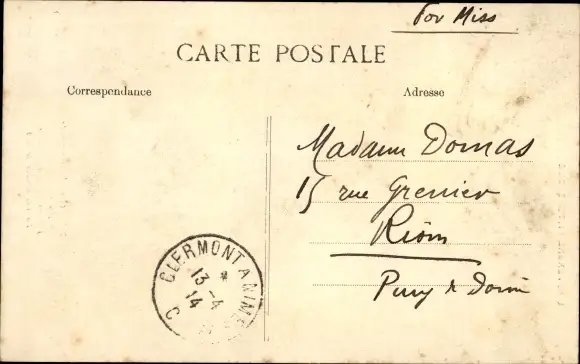 For Miss
CARTE POSTALE
Correspondance
Adresse
Madame Domas
15 rue Grenier
Riom
Puy de Dôme
CLERMONT A NIMES
13-4
14
C